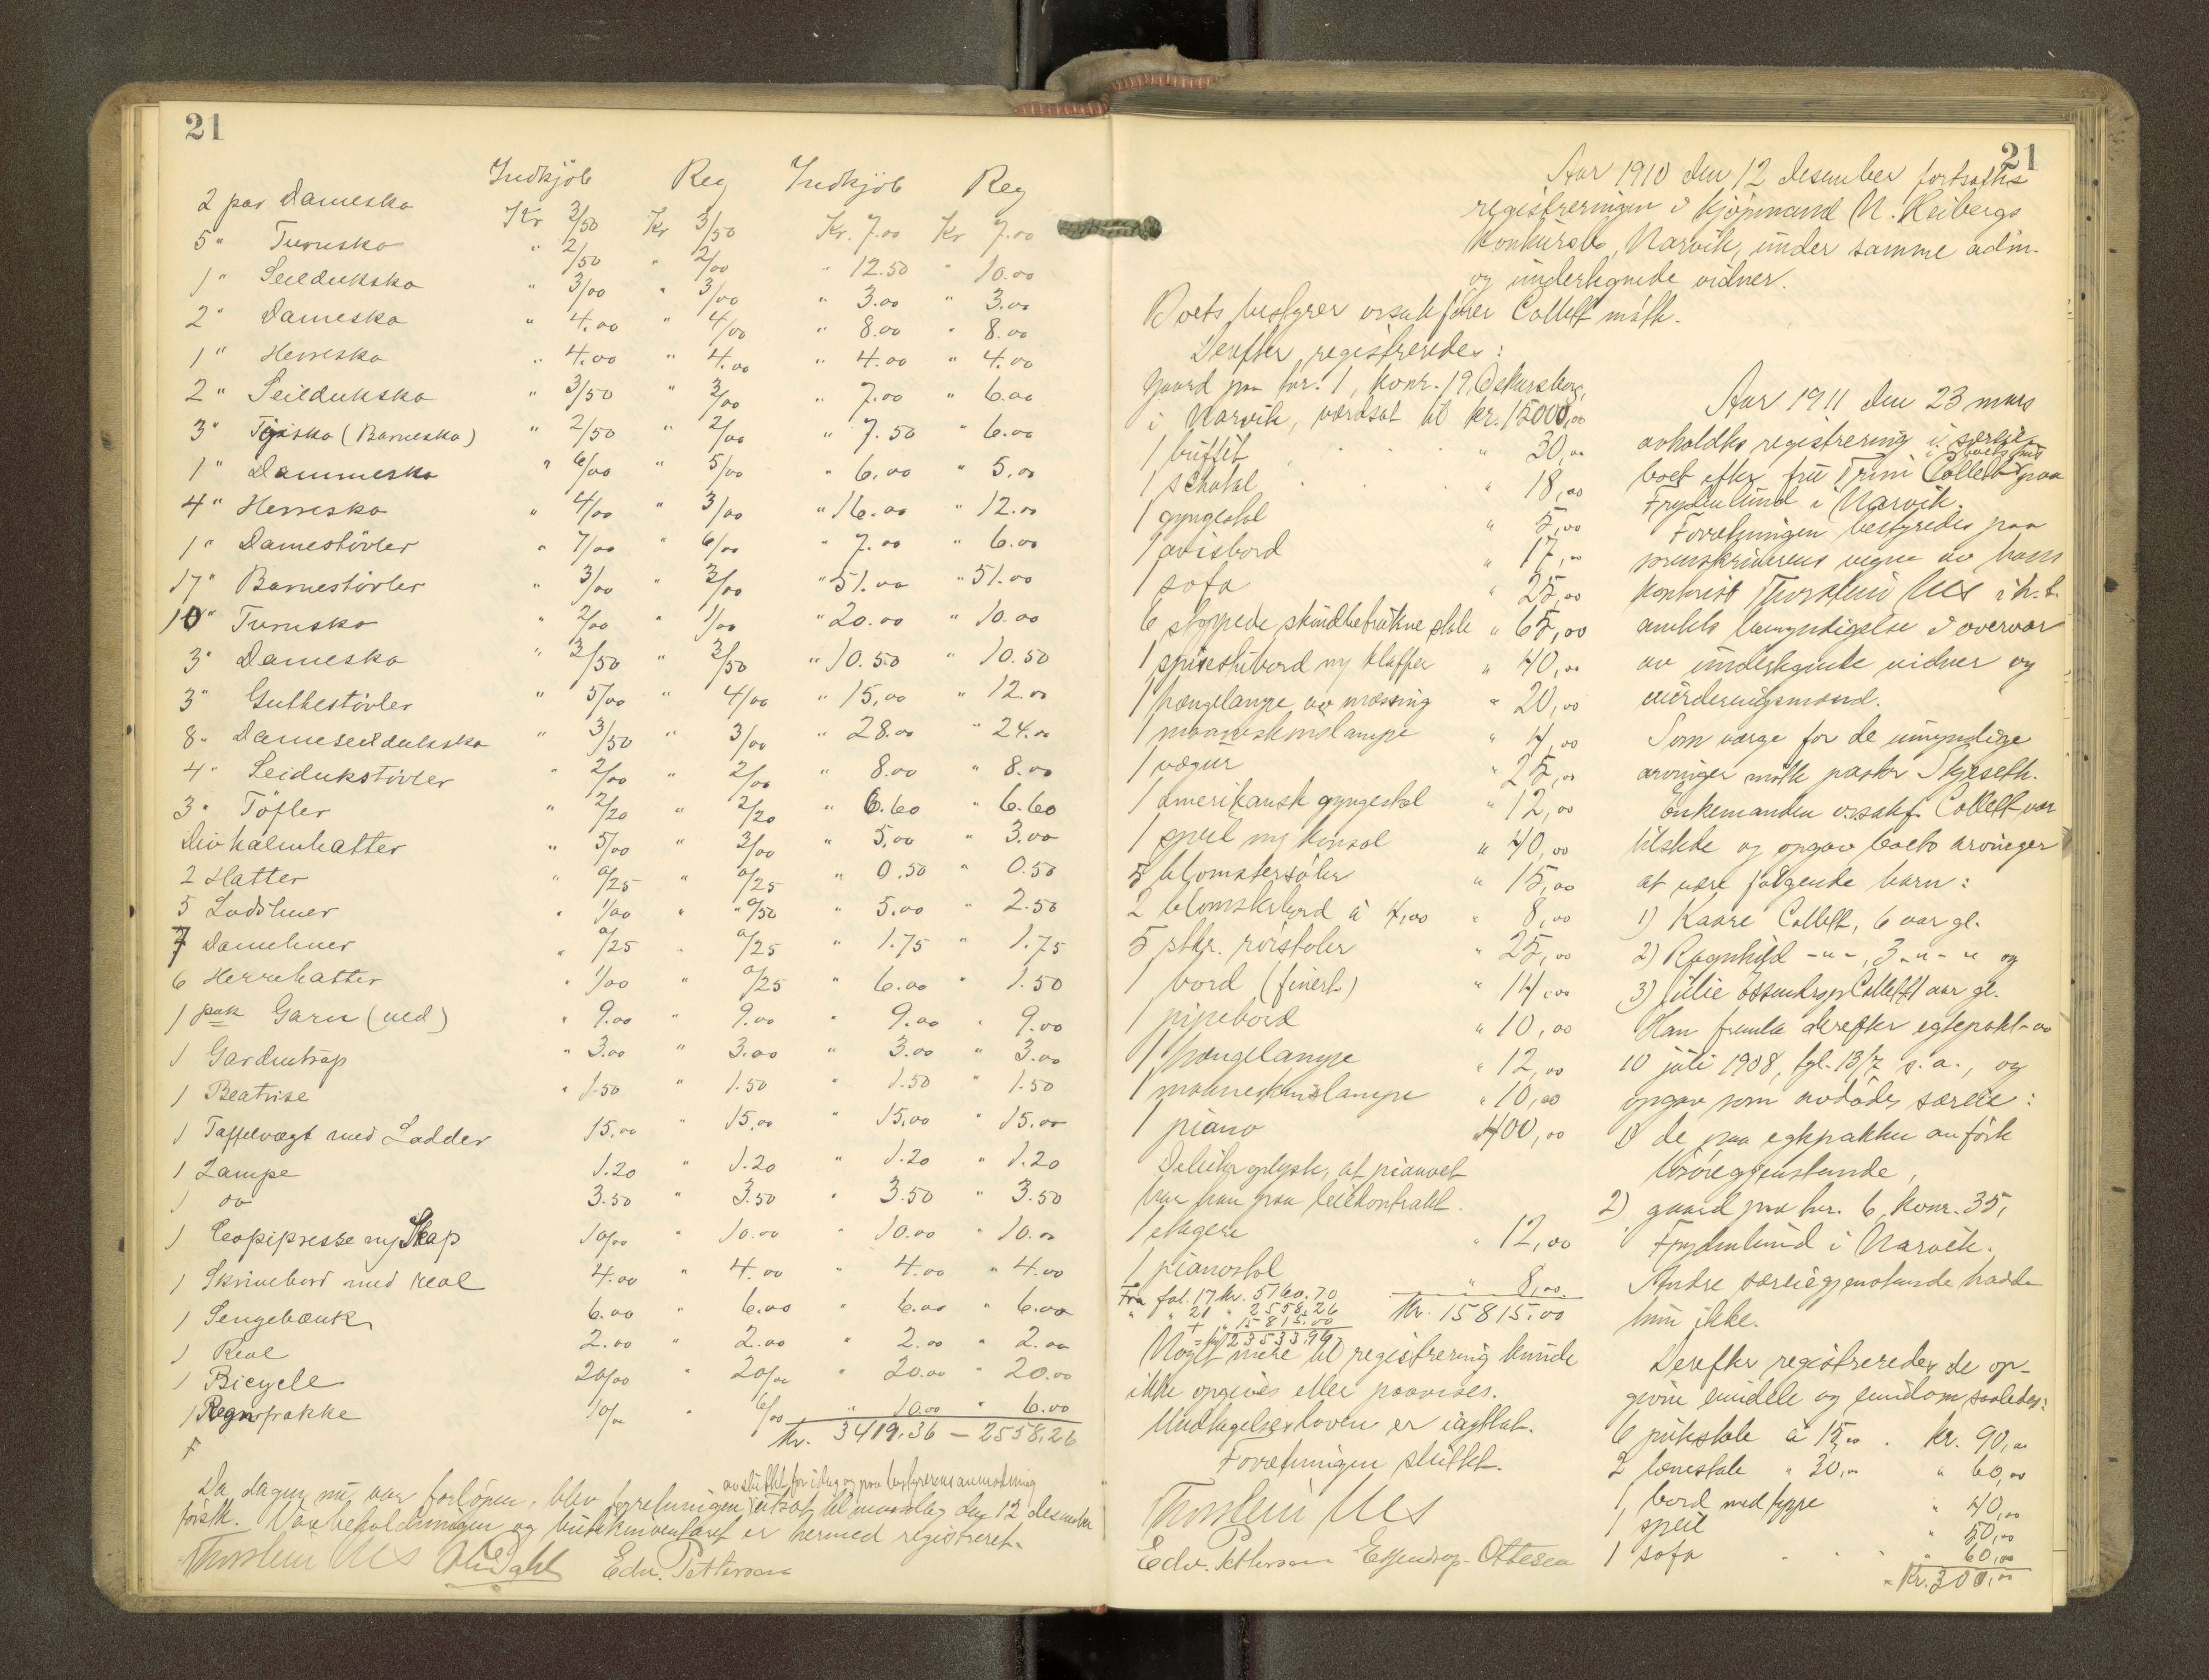 21
Indkjöb Reg Indkjöb Reg
2 par Damesko Kr 3/50 Kr 3/50 Kr. 7.00 Kr 7.00
5 " Turnsko " 2/50 " 2/00 " 12.50 " 10.00
1 " Seilduksko " 3/00 " 3/00 " 3.00 " 3.00
2 " Damesko " 4.00 " 4/00 " 8.00 " 8.00
1 " Herresko " 4.00 " 4.00 " 4.00 " 4.00
2 " Seilduksko " 3/50 " 3/00 " 7.00 " 6.00
3 " Töisko (Barnesko) " 2/50 " 2/00 " 7.50 " 6.00
1 " Dammesko " 6/00 " 5/00 " 6.00 " 5.00
4 " Herresko " 4/00 " 3/00 " 16.00 " 12.00
1 " Damestövler " 7/00 " 6/00 " 7.00 " 6.00
17 " Barnestövler " 3/00 " 3/00 " 51.00 " 51.00
10 " Turnsko " 2/00 " 1/00 " 20.00 " 10.00
3 " Damesko " 3/50 " 3/50 " 10.50 " 10.50
3 " Guttestövler " 5/00 " 4/00 " 15,00 " 12.00
8 " Dameseilduksko " 3/50 " 3/00 " 28.00 " 24.00
4 " Seidukstövler " 2/00 " 2/00 " 8.00 " 8.00
3 " Töfler " 2/20 " 2/20 " 6.60 " 6.60
Div halmhatter " 5/00 " 3/00 " 5,00 " 3.00
2 Hatter " 0/25 " 0/25 " 0.50 " 0.50
5 Lodsluer " 1/00 " 0/50 " 5.00 " 2.50
7 Dameluer " 0/25 " 0/25 " 1.75 " 1.75
6 Herrehatter " 1/00 " 0/25 " 6.00 " 1.50
1 pak Garn (uld) " 9.00 " 9.00 " 9.00 " 9.00
1 Gardintrap " 3.00 " 3.00 " 3.00 " 3.00
1 Beatrise " 1.50 " 1.50 " 1.50 " 1.50
1 Taffelvægt med Lodder 15.00 " 15.00 " 15,00 " 15.00
1 Lampe 1.20 " 1.20 " 1.20 " 1.20
1 do 3.50 " 3.50 " 3.50 " 3.50
1 Copipresse m/ Skap 10/00 " 10.00 " 10.00 " 10.00
1 Skrivebord med real 4.00 " 4.00 " 4.00 " 4.00
1 Sengebænk 6.00 " 6.00 " 6.00 " 6.00
1 Real 2.00 " 2.00 " 2.00 " 2.00
1 Bicycle 20/00 " 20/00 " 20.00 " 20.00
1 Regnfrakke 10/00 " 6/00 " 10.00 " 6.00
Kr. 3419,36 – 2558,26
avsluttet for idag og paa bestyrerens anmodning
Da dagen nu var forlöpen, blev forretningen utsat til mandag den 12 desember
förstk. Varebeholdningen og butikinventaret er hermed registreret.
Thorstein Ues Edv. Pettersen
21
Aar 1910 den 12 desember fortsattes
registreringen i kjöpmand N. Heibergs
konkursbo, Narvik, under samme adm.
og undertegnede vidner.
Boets bestyrer orsakförer Collett mötte.
Derefter registreredes:
Gaard paa kvr. 1, konr. 19, Oskarsborg,
i Narvik, værdsat til kr. 15000,00
1 buffet " 30,00
1 schatol " 18,00
1 gyngestol " 5,00
1 avisbord " 17,00
1 sofa " 25,00
6 stoppede, skindbetrukne stole " 65,00
1 spisestubord m/ klaffer " 40,00
1 hængelampe av messing " 20,00
1 maaneskinslampe " 4,00
1 vægur " 25,00
1 amerikansk gyngestol " 12,00
1 speil m/ konsol " 40,00
5 blomstersöiler " 15,00
2 blomsterbord à 4,00 " 8,00
5 stkr. rörstoler " 25,00
1 bord (finert) " 14,00
1 pipebord " 10,00
1 hængelampe " 12,00
1 maaneskinslampe " 10,00
1 piano " 400,00
Debitor oplyste, at pianoet
har han paa leiekontrakt.
1 etagere " 12,00
1 pianostol " 8,00
Kr. 15815,00
Fra fol. 17 kr. 5160.70
" " 21 " 2558,26
+ " 15815,00
= kr 23533,96
Noget mere til registrering kunde
ikke opgives eller paavises.
Undtagelsesloven er iagttat.
Forretningen sluttet.
Thorstein Ues
Edv. Pettersen Essendrop-Ottesen
Aar 1911 den 23 mars
avholdtes registrering i særeie-
boet efter fru Trini Collett paa
Frydenlund i Narvik.
Forretningen bestyredes paa
sorenskriverens vegne av hans
kontorist Thorstein Ues i h. t.
amtets bemyndigelse i overvær
av undertegnede vidner og
vurderingsmænd.
Som værge for de umyndige
arvinger mötte pastor Skjeseth.
Enkemanden o.r.sakf. Collett var
tilstede og opgav boets arvinger
at være fölgende barn:
1) Kaare Collett, 6 aar gl.
2) Ragnhild -"-, 3 -"- " og
3) Julie Essendrop Collett 1 aar gl.
Han fremla derefter egtepakt av
10 juli 1908, tgl. 13/7 s. a., og
opgav som avdödes særeie:
1) de paa egtepakten anförte
lösöregjenstande,
2) gaard paa kvr. 6, konr. 35,
Frydenlund i Narvik.
Andre særeiegjenstande hadde
hun ikke.
Derefter registreredes de op-
givne eiendele og eiendom saaledes:
6 pukstole à 15,00 . kr. 90,00
2 lænestole " 30,00 " 60,00
1 bord med teppe " 40,00
1 speil " 50,00
1 sofa " 60,00
= Kr. 300,00